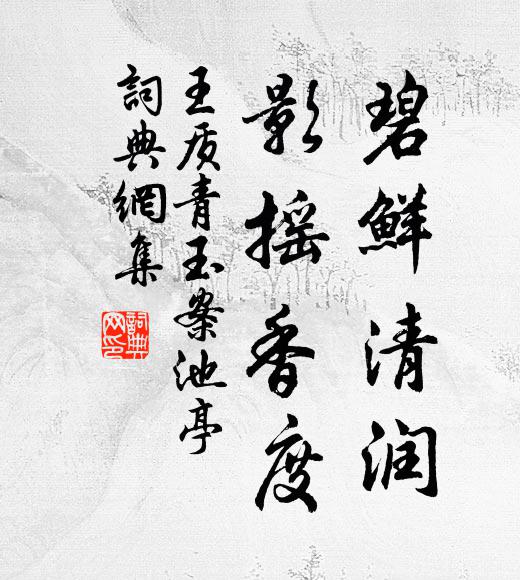 碧鲜清润
影摇香度
王质青玉案池亭
詞典網集
詞典
网印